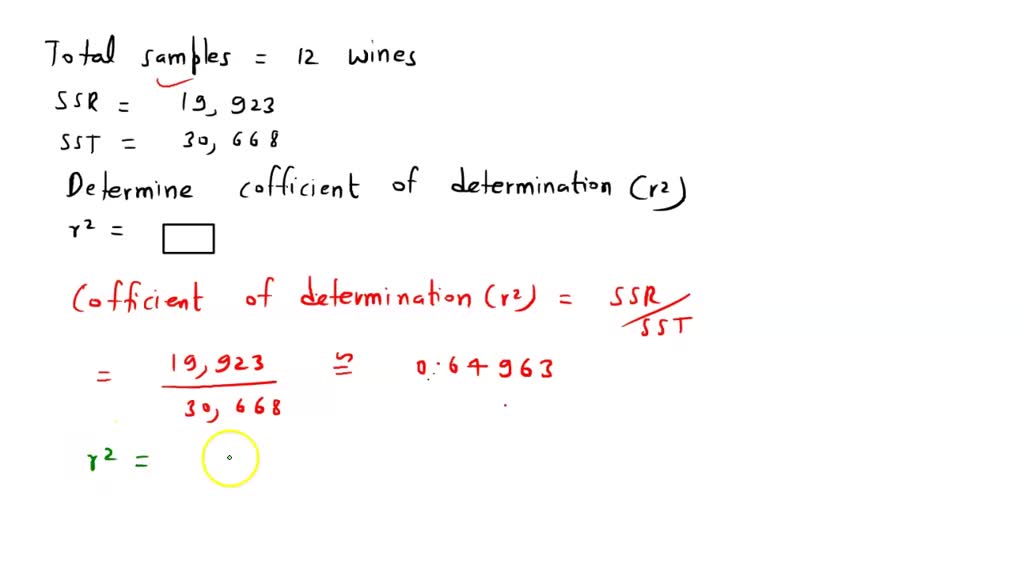 Total samples = 12 wines
SSR = 19, 923
SST = 30, 668
Determine cofficient of determination (r2)
r2 =
Cofficient of determination (r2) = SSR/SST
= 19, 923 / 30, 668 ≅ 0.64963
r2 =